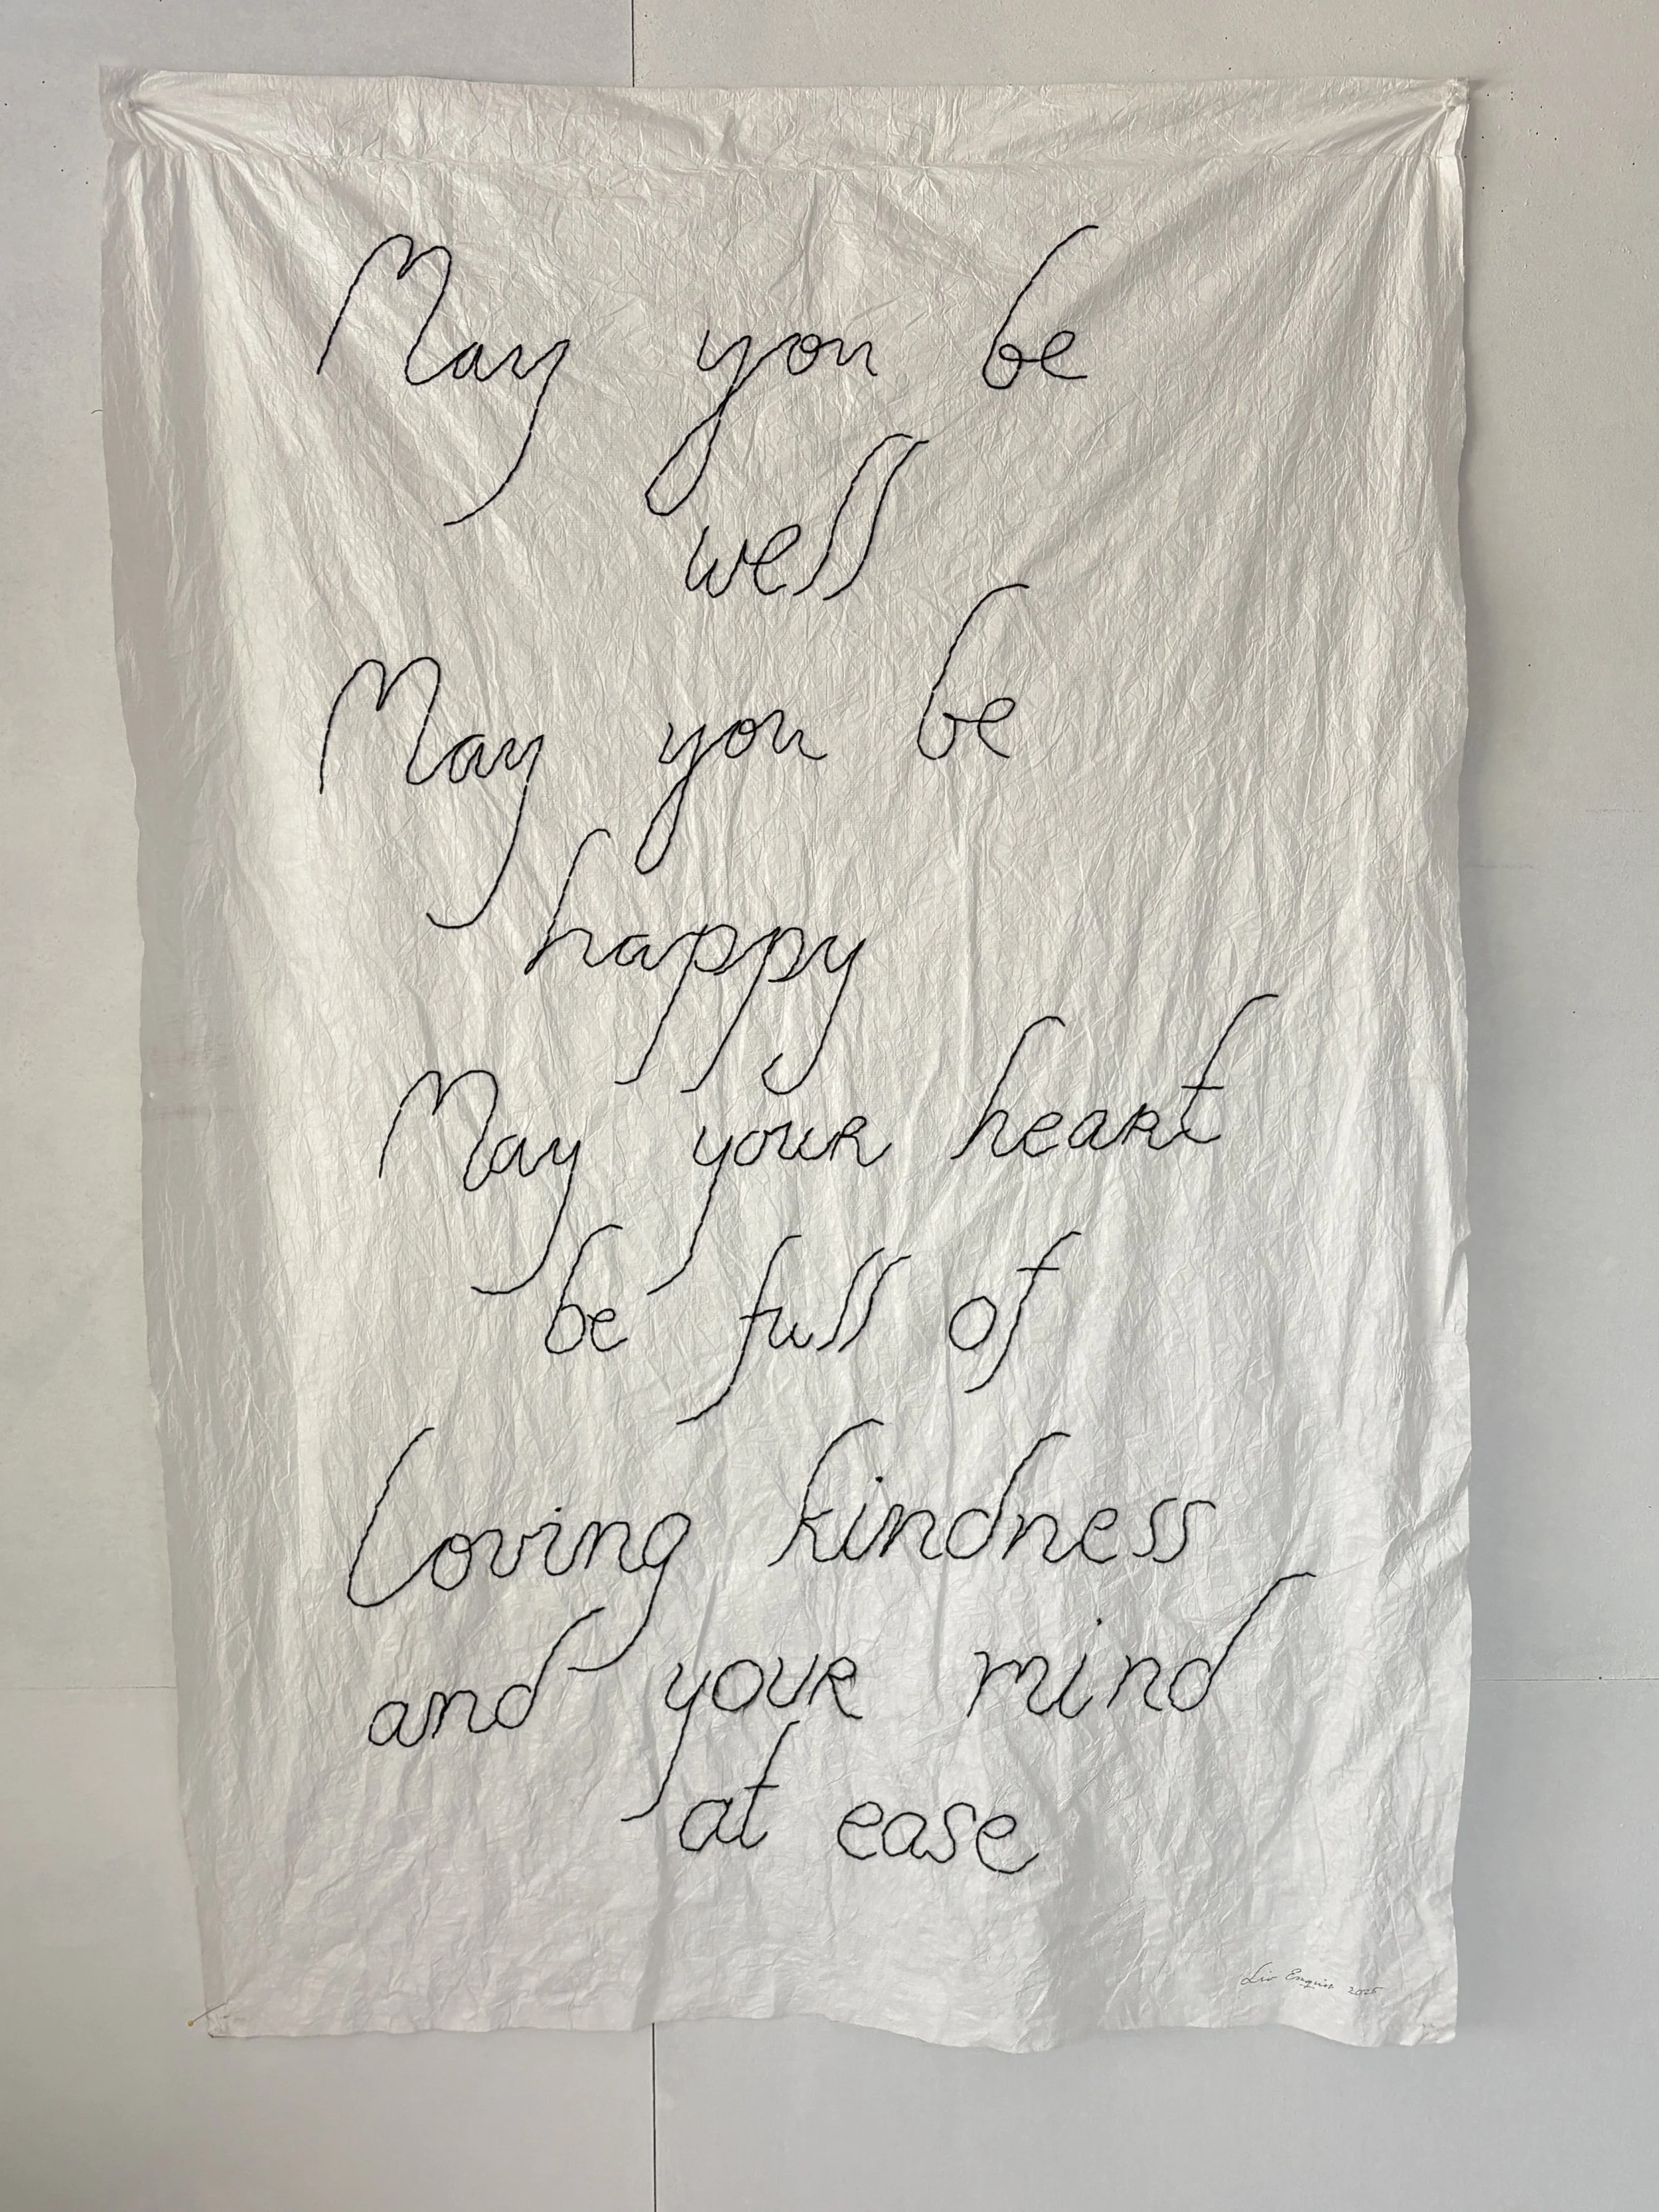 May you be
well
May you be
happy
May your heart
be full of
Loving kindness
and your mind
at ease
Liv